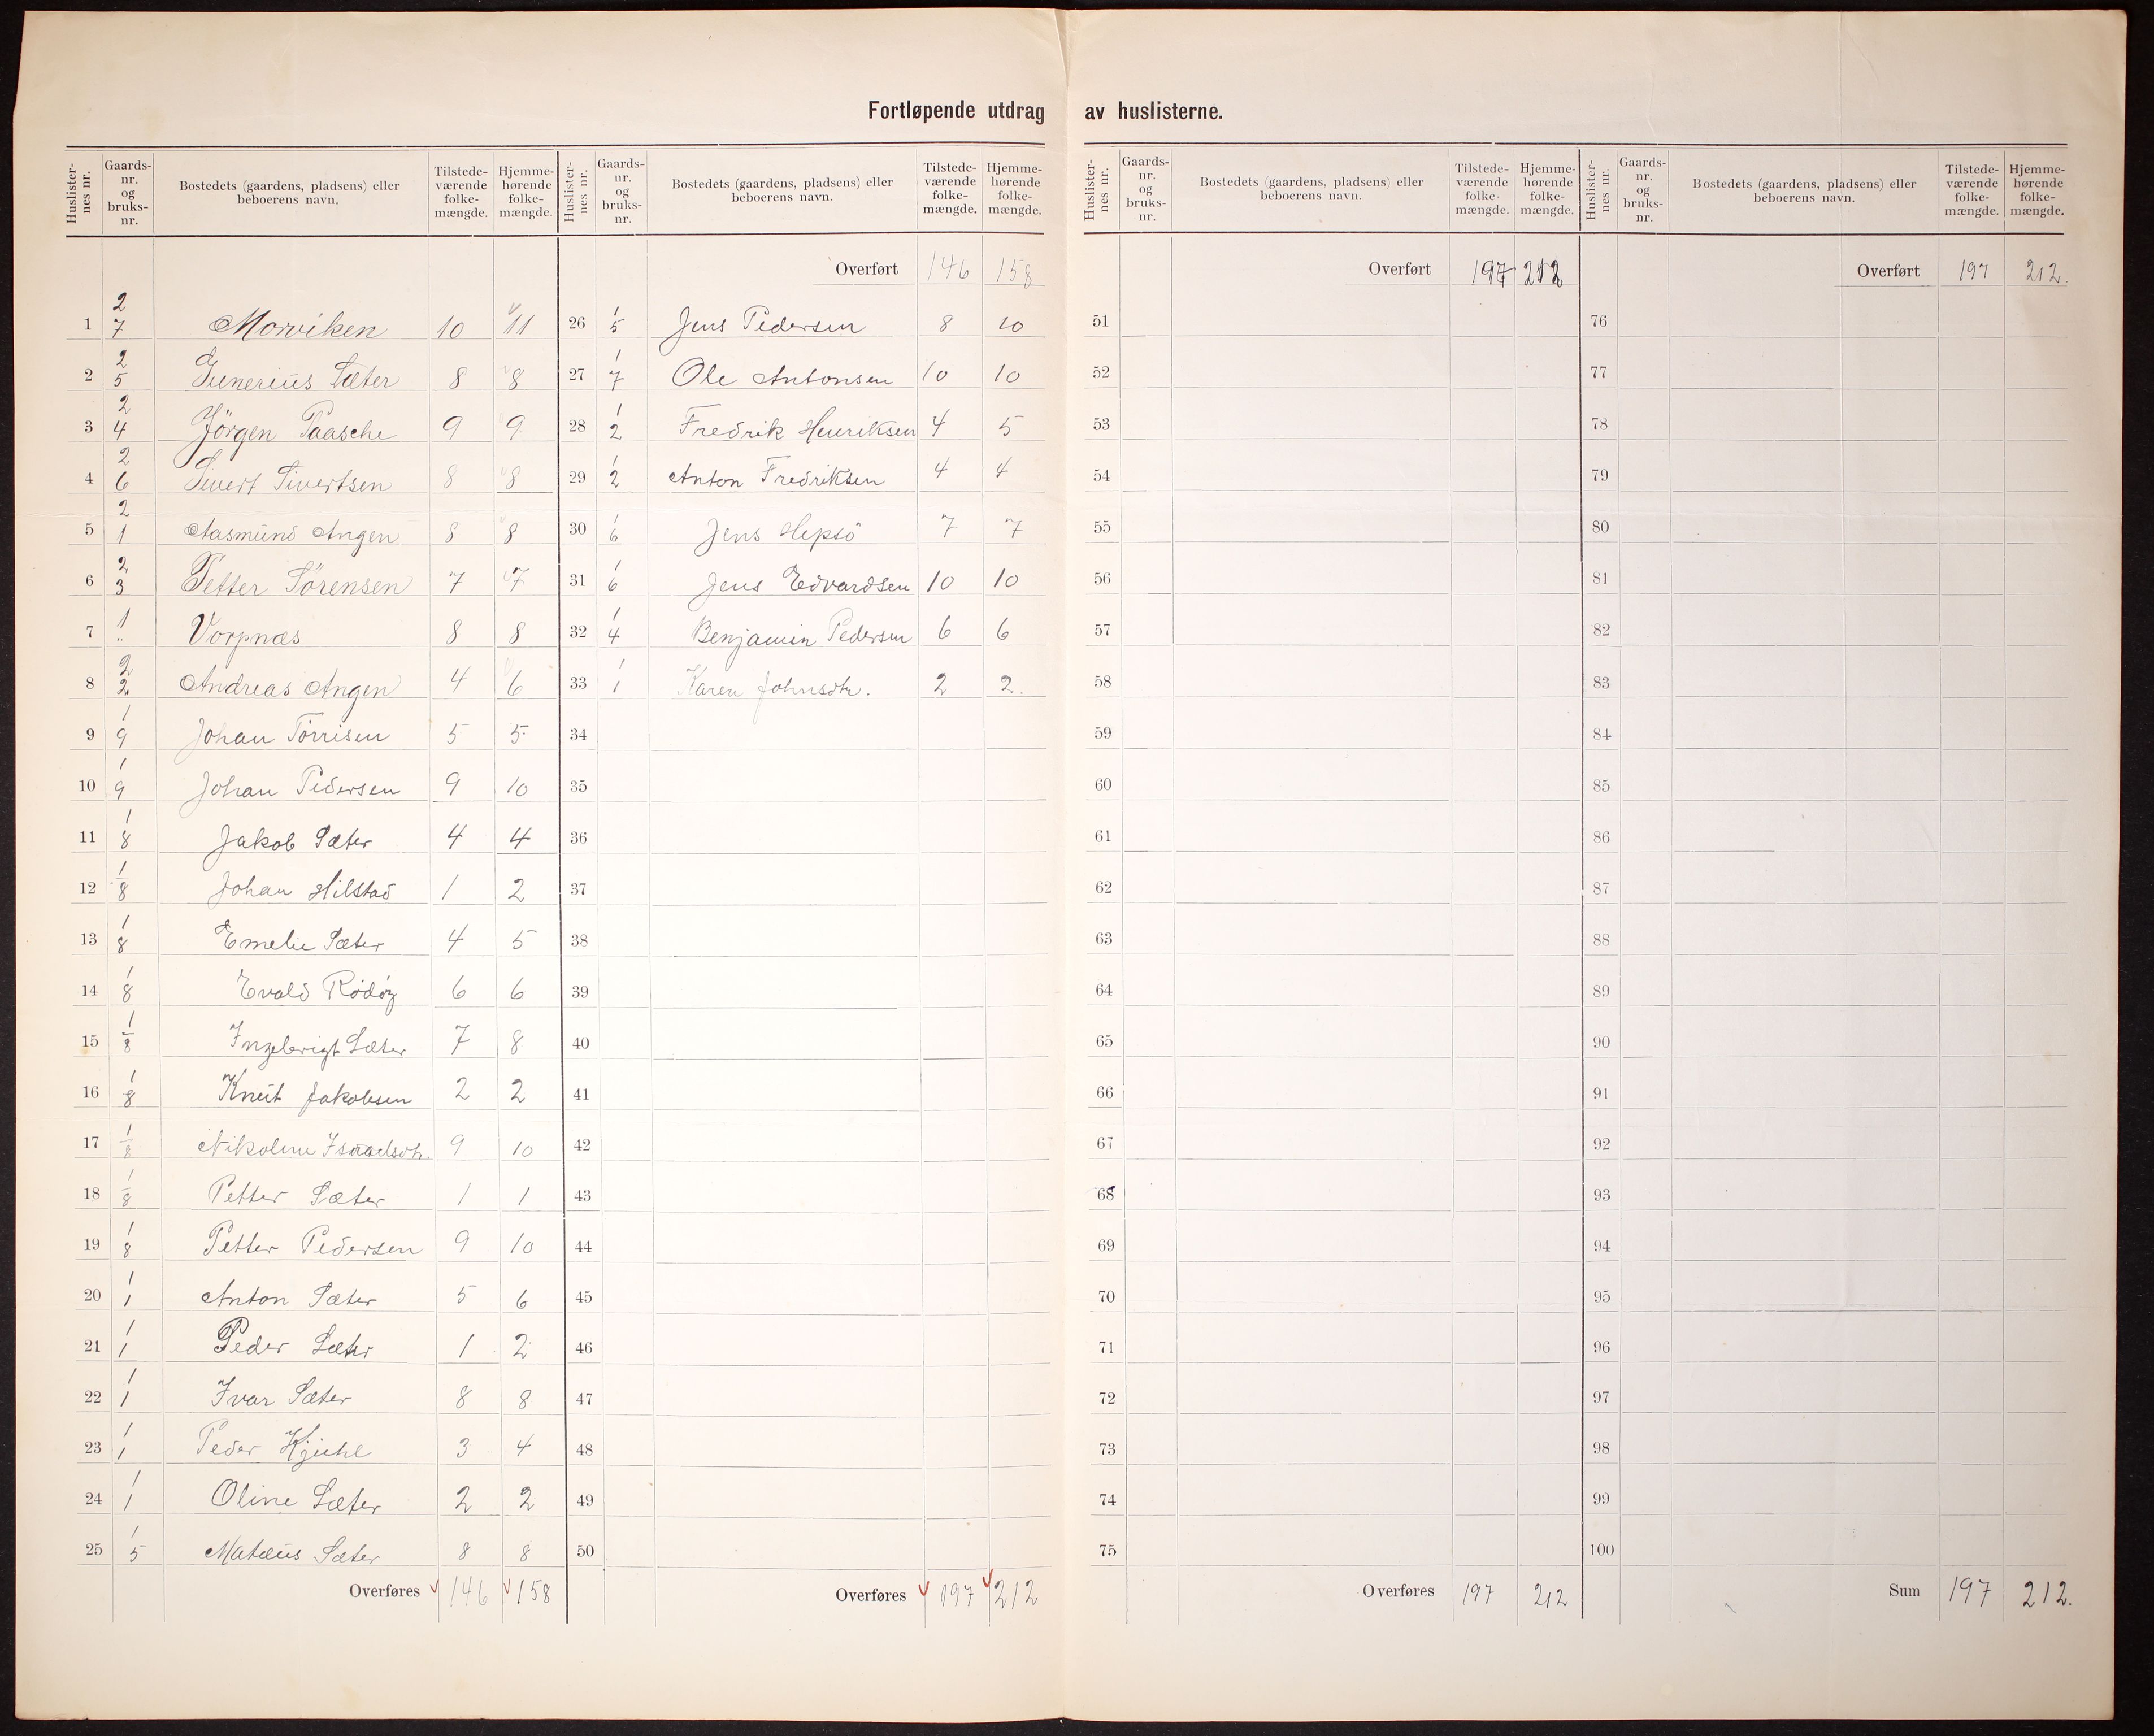 Fortløpende utdrag av huslisterne.
Huslisternes nr. Gaardsnr. og bruksnr. Bostedets (gaardens, pladsens) eller beboerens navn. Tilstedeværende folkemængde. Hjemmehørende folkemængde.
1 2/7 Morviken 10 11
2 2/5 Gunerius Sæter 8 8
3 2/4 Jörgen Paasche 9 9
4 2/6 Sivert Sivertsen 8 8
5 2/1 Aasmund Angen 8 8
6 2/3 Petter Sörensen 7 7
7 1/" Vorpnæs 8 8
8 2/2 Andreas Angen 4 6
9 1/9 Johan Törrisen 5 5
10 1/9 Johan Pedersen 9 10
11 1/8 Jakob Sæter 4 4
12 1/8 Johan Hilstad 1 2
13 1/8 Emelie Sæter 4 5
14 1/8 Evald Rödöy 6 6
15 1/8 Ingebrigt Sæter 7 8
16 1/8 Knut Jakobsen 2 2
17 1/8 Nikoline Israelsdtr. 9 10
18 1/8 Petter Sæter 1 1
19 1/8 Petter Pedersen 9 10
20 1/1 Anton Sæter 5 6
21 1/1 Peder Sæter 1 2
22 1/1 Ivar Sæter 8 8
23 1/1 Peder 3 4
24 1/1 Oline Sæter 2 2
25 1/5 Matæus Sæter 8 8
Overføres 146 158
Huslisternes nr. Gaardsnr. og bruksnr. Bostedets (gaardens, pladsens) eller beboerens navn. Tilstedeværende folkemængde. Hjemmehørende folkemængde.
Overført 146 158
26 1/5 Jens Pedersen 8 10
27 1/7 Ole Antonsen 10 10
28 1/2 Fredrik Henriksen 4 5
29 1/2 Anton Fredriksen 4 4
30 1/6 Jens Hepsö 7 7
31 1/6 Jens Edvardsen 10 10
32 1/4 Benjamin Pedersen 6 6
33 1/1 Karen Johnsdtr. 2 2.
34
35
36
37
38
39
40
41
42
43
44
45
46
47
48
49
50
Overføres 197 212
Huslisternes nr. Gaardsnr. og bruksnr. Bostedets (gaardens, pladsens) eller beboerens navn. Tilstedeværende folkemængde. Hjemmehørende folkemængde.
Overført 197 212
51
52
53
54
55
56
57
58
59
60
61
62
63
64
65
66
67
68
69
70
71
72
73
74
75
Overføres 197 212
Huslisternes nr. Gaardsnr. og bruksnr. Bostedets (gaardens, pladsens) eller beboerens navn. Tilstedeværende folkemængde. Hjemmehørende folkemængde.
Overført 197 212.
76
77
78
79
80
81
82
83
84
85
86
87
88
89
90
91
92
93
94
95
96
97
98
99
100
Sum 197 212.